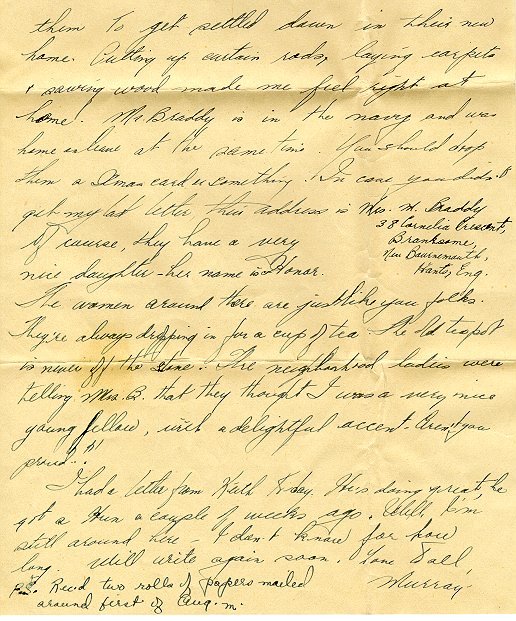 them to get settled down in their new
home. Cutting up curtain rods, laying carpets
& sawing wood made me feel right at
home. Mr. Braddy is in the navy and was
home on leave at the same time. You should drop
them a Xmas card or something. In case you didn't
get my last letter, their address is Mrs. W. Braddy
38 Cornelia Crescent,
Branksome,
Nr. Bournemouth,
Hants, Eng.
Of course, they have a very
nice daughter - her name is Honor.
The women around there are just like you folks.
They're always dropping in for a cup of tea. The old teapot
is never off the stove. The neighborhood ladies were
telling Mrs. B. that they thought I was a very nice
young fellow, with a delightful accent - Aren't you
proud?!
I had a letter from Keith today. He is doing great, he
got a Hun a couple of weeks ago. Well, I'm
still around here - I don't know for how
long. Will write again soon. Love to all,
Murray.
P.S. Rec'd two rolls of papers mailed
around first of Aug. M.